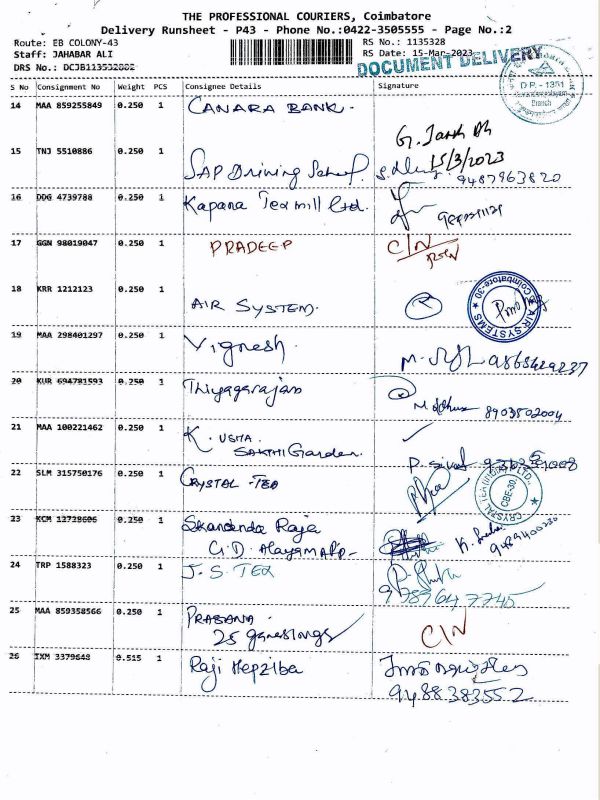 THE PROFESSIONAL COURIERS, Coimbatore
Delivery Runsheet - P43 - Phone No.:0422-3505555 - Page No.:2
Route: EB COLONY-43
RS No.: 1135328
Staff: JAHABAR ALI
RS Date: 15-Mar-2023
DRS No.: DCJB113532882
DOCUMENT DELIVERY
D.P. - 1351
Branch
S No Consignment No Weight PCS Consignee Details Signature
14 MAA 859255849 0.250 1 CANARA BANK.
15/3/2023
15 TNJ 5510886 0.250 1 SAP Driving School. 9487963820
16 DDG 4739788 0.250 1 Kapana Texmill Ltd.
17 GGN 98019047 0.250 1 PRADEEP C/N
18 KRR 1212123 0.250 1 AIR SYSTEM.
AIR SYSTEMS Coimbatore-30
19 MAA 298401297 0.250 1 Vignesh.
20 KUR 694781593 0.250 1 Thiyagarajan
8903502004
21 MAA 100221462 0.250 1 K. USHA.
SAKTHI Garden.
22 SLM 315750176 0.250 1 CRYSTAL - TEX
CRYSTAL TEX (INDIA) P LTD.
CBE-30.
23 KCM 12728606 0.250 1 Skandenda Raja
G.D. Alayam Ap-
9489400230
24 TRP 1588323 0.250 1 J.S. TEX
9789647745
25 MAA 859358566 0.250 1 PRASANA C/N
25
26 IXM 3379648 0.515 1 Raji Hepziba
9488383552